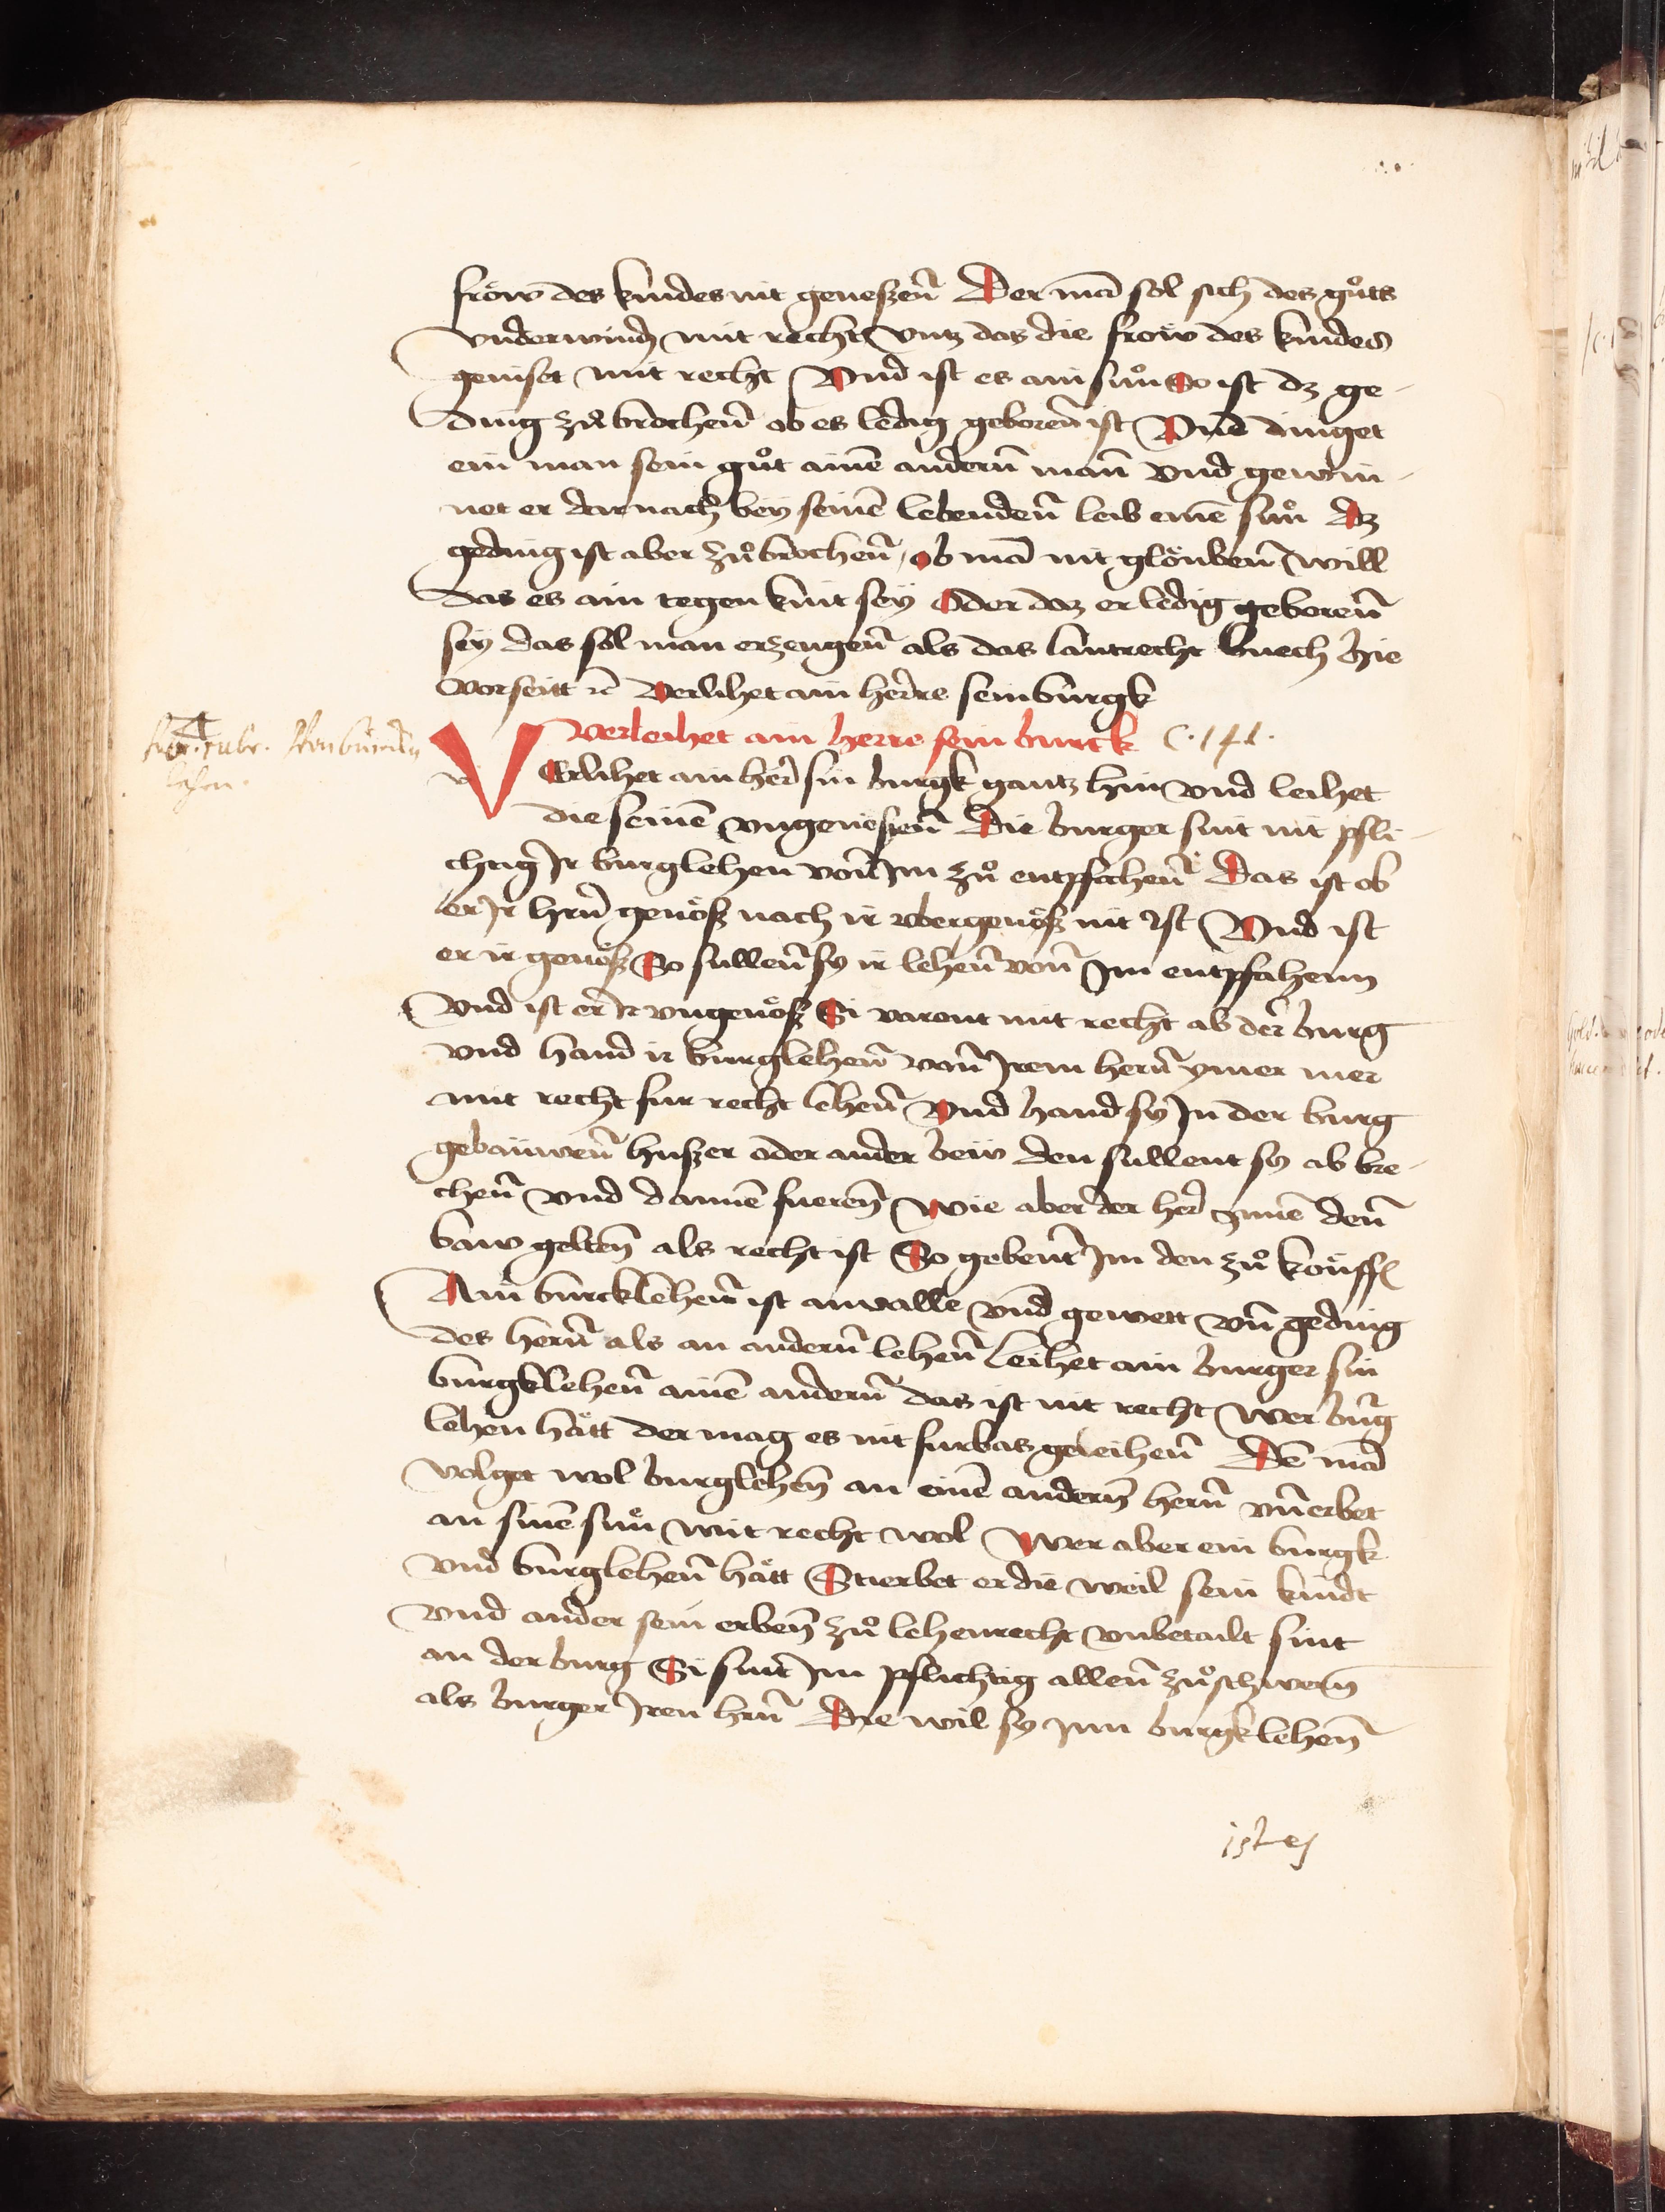 fröw des kindes nit geneszen̄ Der mā sol sich des gůts
vnderwindn̄ mit recht vntz das die fröw des kindes
geniset mit recht Vnd ist es ain sun̊ So ist dz ge-
ding zů brochen̄ ob es ledig geboren̄ ist Vnd dinget
ein man sein gůt ainē andern̄ man̄ vnd gewin-
net er darnach bey seinē lebenden̄ leib einē sun̊ dz
geding ist aber zůbrochen̄ ob mā nit glöuben̄ will
das es ain tegen kint sey Oder daz er ledig geboren̄
sey das sol man erzeugen̄ als das lantrecht buech hie
vorseitt rc̄ Verlihet ain herre sein burgk
Verleihet ain herre sein burck C. 141.
VErlihet ain her̄ sin burgk gantz hin vnd leihet
die seinē vngenoszen̄ Die burger sint nit pfli-
chtig Ir burglehen von̄ Im zů entpfahen̄ Das ist ob
er Ir hrn̄ genösz nach ir vbergenösz nit ist Vnd ist
er ir genösz So sullen̄ sy ir lehen̄ von̄ Im entpfahenn
Vnd ist er Ir vngenösz Si varent mit recht ab der burg
vnd hand ir burglehen̄ von̄ Irem hern̄ ymer mer
mit recht fur recht lehen̄ Vnd hand sy In der burg
gebauwen̄ huszer oder ander bew den sullent sy ab bre-
chen̄ vnd dannē fueren̄ Wie aber der her̄ Inen den̄
baw gelten̄ als recht ist So gebent Im den zů kouffen
Ain burcklehen̄ ist anualle vnd gewett vn̄ geding
des hern̄ als an andern̄ lehen̄ Leihet ain burger sin
burgklehen̄ ainē andern̄ das ist nit recht Wer burg
lehen hätt der mag es nit furbas geleihen̄ Dē mā
volget wol burglehen̄ an einē andern̄ hern̄ vn̄ erbet
an sinē sun̊ mit recht wol Wer aber ein burgk
vnd burglehen̄ hätt Stierbet er die weil sein kindt
vnd ander sein erben̄ zů lehenrecht vnbetailt sint
an der burg Si sint Im pflichtig allen̄ zů schwern̄
als burger Iren hrn̄ Die wil sy Inn burgklehen̄